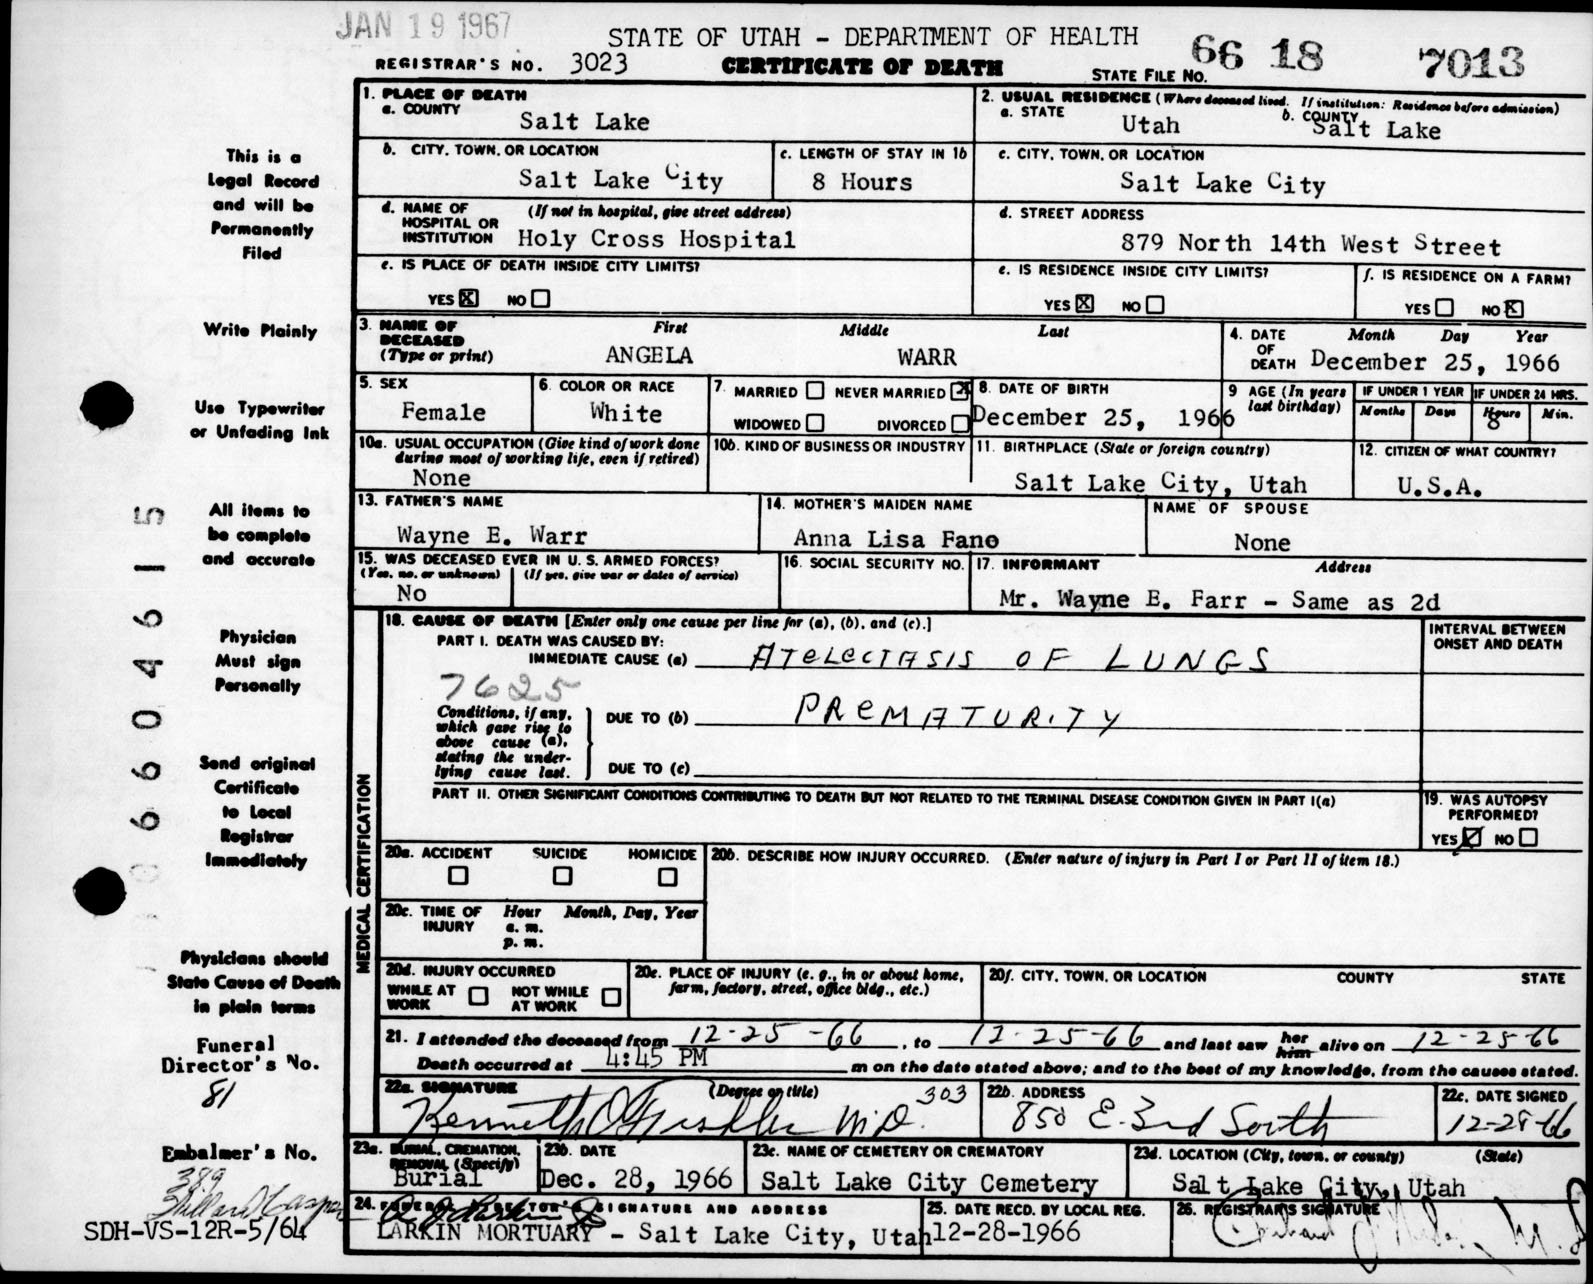 JAN 19 1967
STATE OF UTAH - DEPARTMENT OF HEALTH
REGISTRAR'S NO. 3023 CERTIFICATE OF DEATH STATE FILE NO. 66 18 7013
1. PLACE OF DEATH
a. COUNTY
Salt Lake
2. USUAL RESIDENCE (Where deceased lived. If institution: Residence before admission)
a. STATE Utah b. COUNTY Salt Lake
b. CITY, TOWN, OR LOCATION
Salt Lake City
c. LENGTH OF STAY IN 1b
8 Hours
c. CITY, TOWN, OR LOCATION
Salt Lake City
d. NAME OF HOSPITAL OR INSTITUTION (If not in hospital, give street address)
Holy Cross Hospital
d. STREET ADDRESS
879 North 14th West Street
e. IS PLACE OF DEATH INSIDE CITY LIMITS?
YES X NO
e. IS RESIDENCE INSIDE CITY LIMITS?
YES X NO
f. IS RESIDENCE ON A FARM?
YES NO X
3. NAME OF DECEASED (Type or print) First Middle Last
ANGELA WARR
4. DATE OF DEATH Month Day Year
December 25, 1966
5. SEX
Female
6. COLOR OR RACE
White
7. MARRIED NEVER MARRIED X
WIDOWED DIVORCED
8. DATE OF BIRTH
December 25, 1966
9 AGE (In years last birthday)
IF UNDER 1 YEAR
Months Days
IF UNDER 24 HRS.
Hours Min.
8
10a. USUAL OCCUPATION (Give kind of work done during most of working life, even if retired)
None
10b. KIND OF BUSINESS OR INDUSTRY
11. BIRTHPLACE (State or foreign country)
Salt Lake City, Utah
12. CITIZEN OF WHAT COUNTRY?
U.S.A.
13. FATHER'S NAME
Wayne E. Warr
14. MOTHER'S MAIDEN NAME
Anna Lisa Fano
NAME OF SPOUSE
None
15. WAS DECEASED EVER IN U. S. ARMED FORCES?
(Yes, no, or unknown) (If yes, give war or dates of service)
No
16. SOCIAL SECURITY NO.
17. INFORMANT Address
Mr. Wayne E. Farr - Same as 2d
18. CAUSE OF DEATH [Enter only one cause per line for (a), (b), and (c).]
PART I. DEATH WAS CAUSED BY:
IMMEDIATE CAUSE (a) ATELECTASIS OF LUNGS
INTERVAL BETWEEN ONSET AND DEATH
7625
Conditions, if any, which gave rise to above cause (a), stating the underlying cause last.
DUE TO (b) PREMATURITY
DUE TO (c)
PART II. OTHER SIGNIFICANT CONDITIONS CONTRIBUTING TO DEATH BUT NOT RELATED TO THE TERMINAL DISEASE CONDITION GIVEN IN PART I(a)
19. WAS AUTOPSY PERFORMED?
YES NO
MEDICAL CERTIFICATION
20a. ACCIDENT SUICIDE HOMICIDE
20b. DESCRIBE HOW INJURY OCCURRED. (Enter nature of injury in Part I or Part II of item 18.)
20c. TIME OF INJURY Hour Month, Day, Year
a. m.
p. m.
20d. INJURY OCCURRED
WHILE AT WORK NOT WHILE AT WORK
20e. PLACE OF INJURY (e. g., in or about home, farm, factory, street, office bldg., etc.)
20f. CITY, TOWN, OR LOCATION COUNTY STATE
21. I attended the deceased from 12-25-66, to 12-25-66 and last saw her him alive on 12-25-66
Death occurred at 4:45 PM m on the date stated above; and to the best of my knowledge, from the causes stated.
22a. SIGNATURE (Degree or title) 303
Kenneth M.D.
22b. ADDRESS
850 E. 3rd South
22c. DATE SIGNED
12-28-66
23a. BURIAL, CREMATION, REMOVAL (Specify)
Burial
23b. DATE
Dec. 28, 1966
23c. NAME OF CEMETERY OR CREMATORY
Salt Lake City Cemetery
23d. LOCATION (City, town, or county) (State)
Salt Lake City, Utah
24. FUNERAL DIRECTOR'S SIGNATURE AND ADDRESS
LARKIN MORTUARY - Salt Lake City, Utah
25. DATE RECD. BY LOCAL REG.
12-28-1966
26. REGISTRAR'S SIGNATURE
This is a
Legal Record
and will be
Permanently
Filed
Write Plainly
Use Typewriter
or Unfading Ink
All items to
be complete
and accurate
Physician
Must sign
Personally
Send original
Certificate
to Local
Registrar
Immediately
Physicians should
State Cause of Death
in plain terms
Funeral
Director's No.
81
Embalmer's No.
389
SDH-VS-12R-5/64
6604615